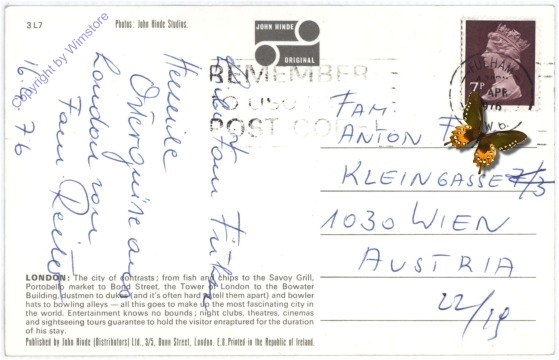 3 L7
Photos: John Hinde Studios.
JOHN HINDE
ORIGINAL
Copyright by Wimstore
REMEMBER
TO USE
POST CODE
FULHAM
APR
1976
W6
7P
16.4.76
Herzliche
Ostergrüsse aus
London von
Fam.
FAM.
ANTON
KLEINGASSE
1030 WIEN
AUSTRIA
22/19
LONDON: The city of contrasts; from fish and chips to the Savoy Grill,
Portobello market to Bond Street, the Tower of London to the Bowater
Building, dustmen to dukes (and it's often hard to tell them apart) and bowler
hats to bowling alleys — all this goes to make up the most fascinating city in
the world. Entertainment knows no bounds; night clubs, theatres, cinemas
and sightseeing tours guarantee to hold the visitor enraptured for the duration
of his stay.
Published by John Hinde (Distributors) Ltd., 3/5, Dunn Street, London. E.8. Printed in the Republic of Ireland.